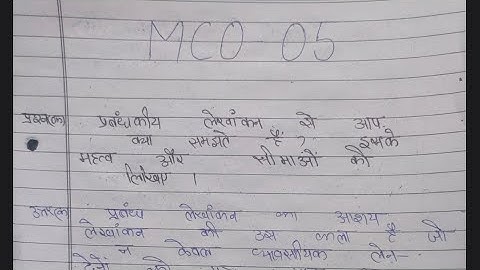 MCO-05
प्रश्न(क) प्रबंधकीय लेखांकन से आप
क्या समझते हैं? इसके
महत्व और सीमाओं को
लिखिए।
उत्तर(क) प्रबंध लेखांकन का आशय
लेखांकन की उस कला है जो
न केवल व्यावसायिक लेन-
देनों को